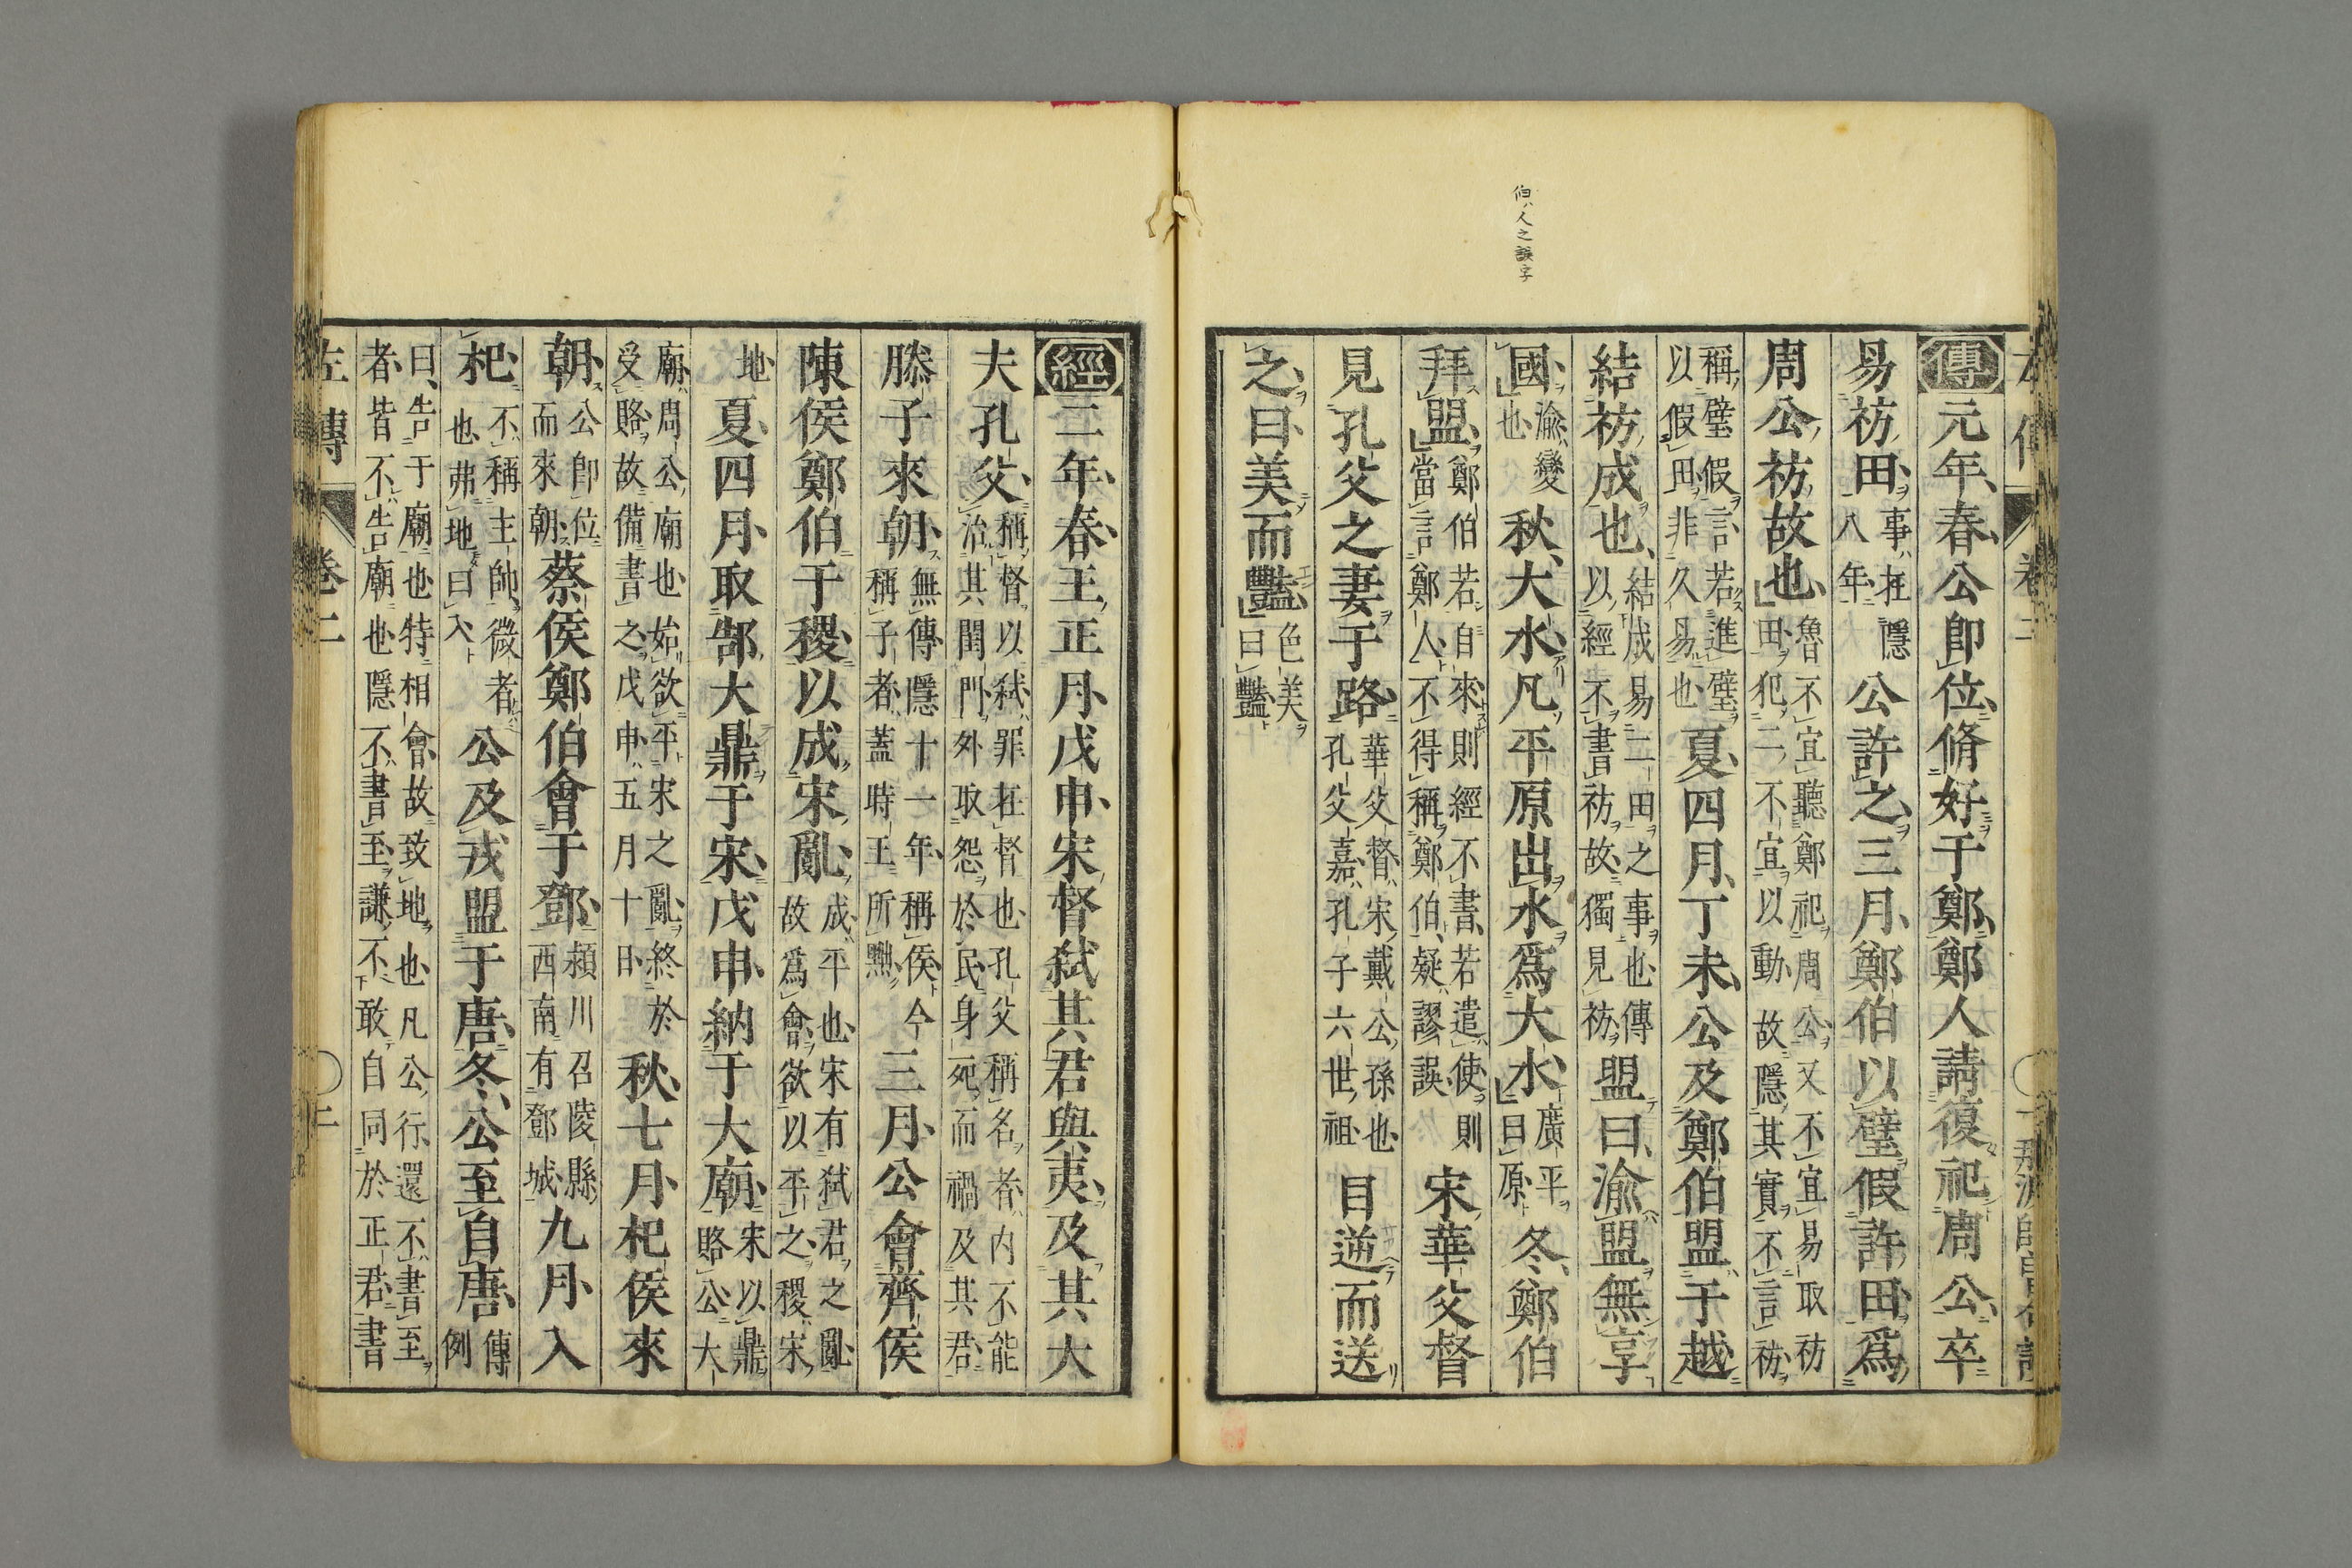 伯ハ人之誤字
傳元年春公即位脩好于鄭鄭人請復祀周公卒
易祊田事在隱八年公許之三月鄭伯以璧假許田爲
周公祊故也魯不宜聽鄭祀周公又不宜易取祊田犯二不宜以動故隱其實不言祊
稱璧假言若進璧以假田非久易也夏四月丁未公及鄭伯盟于越
結祊成也結成易二田之事也傳以經不書祊故獨見祊盟曰渝盟無享
國渝變也秋大水凡平原出水爲大水廣平曰原冬鄭伯
拜盟鄭伯若自來則經不書若遣使則當言鄭人不得稱鄭伯疑謬誤宋華父督
見孔父之妻于路華父督宋戴公孫也孔父嘉孔子六世祖目逆而送
之曰美而豔色美曰豔
經二年春王正月戊申宋督弒其君與夷及其大
夫孔父稱督以弒罪在督也孔父稱名者内不能治其閨門外取怨於民身死而禍及其君
滕子來朝無傳隱十一年稱侯今稱子者蓋時王所黜三月公會齊侯
陳侯鄭伯于稷以成宋亂成平也宋有弒君之亂故爲會欲以平之稷宋
地夏四月取郜大鼎于宋戊申納于大廟宋以鼎賂公大
廟周公廟也始欲平宋之亂終於受賂故備書之戊申五月十日秋七月杞侯來
朝公即位而來朝蔡侯鄭伯會于鄧潁川召陵縣西南有鄧城九月入
杞不稱主帥微者也弗地曰入公及戎盟于唐冬公至自唐傳例
曰告于廟也特相會故致地也凡公行還不書至者皆不告廟也隱不書至謙不敢自同於正君書
左傳 卷二 二